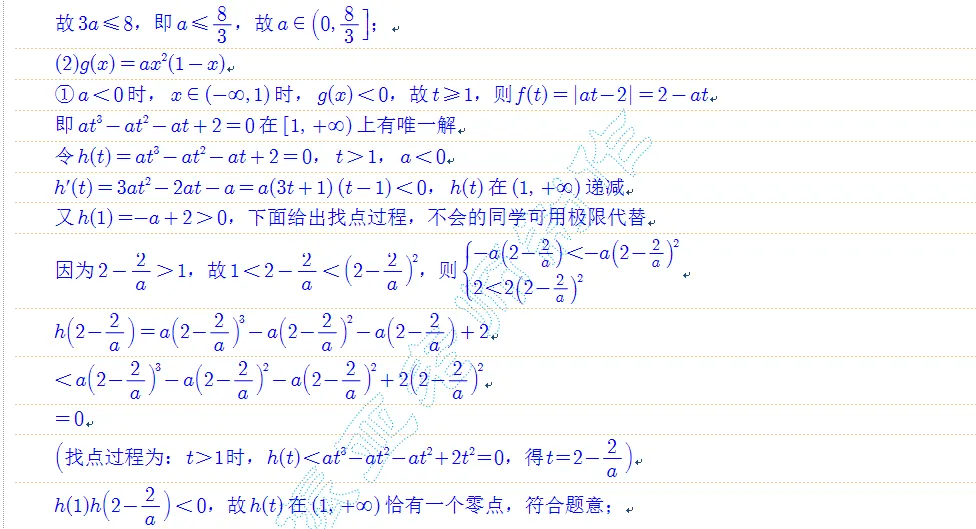 故3a≤8，即a≤8/3，故a∈(0, 8/3]；
(2)g(x)=ax²(1−x)
①a<0时，x∈(−∞,1)时，g(x)<0，故t≥1，则f(t)=|at−2|=2−at
即at³−at²−at+2=0在[1,+∞)上有唯一解
令h(t)=at³−at²−at+2=0，t>1，a<0
h′(t)=3at²−2at−a=a(3t+1)(t−1)<0，h(t)在(1,+∞)递减
又h(1)=−a+2>0，下面给出找点过程，不会的同学可用极限代替
因为2−2/a>1，故1<2−2/a<(2−2/a)²，则{−a(2−2/a)<−a(2−2/a)² 2<2(2−2/a)²
h(2−2/a)=a(2−2/a)³−a(2−2/a)²−a(2−2/a)+2
<a(2−2/a)³−a(2−2/a)²−a(2−2/a)²+2(2−2/a)²
=0
(找点过程为：t>1时，h(t)<at³−at²−at²+2t²=0，得t=2−2/a)
h(1)h(2−2/a)<0，故h(t)在(1,+∞)恰有一个零点，符合题意；